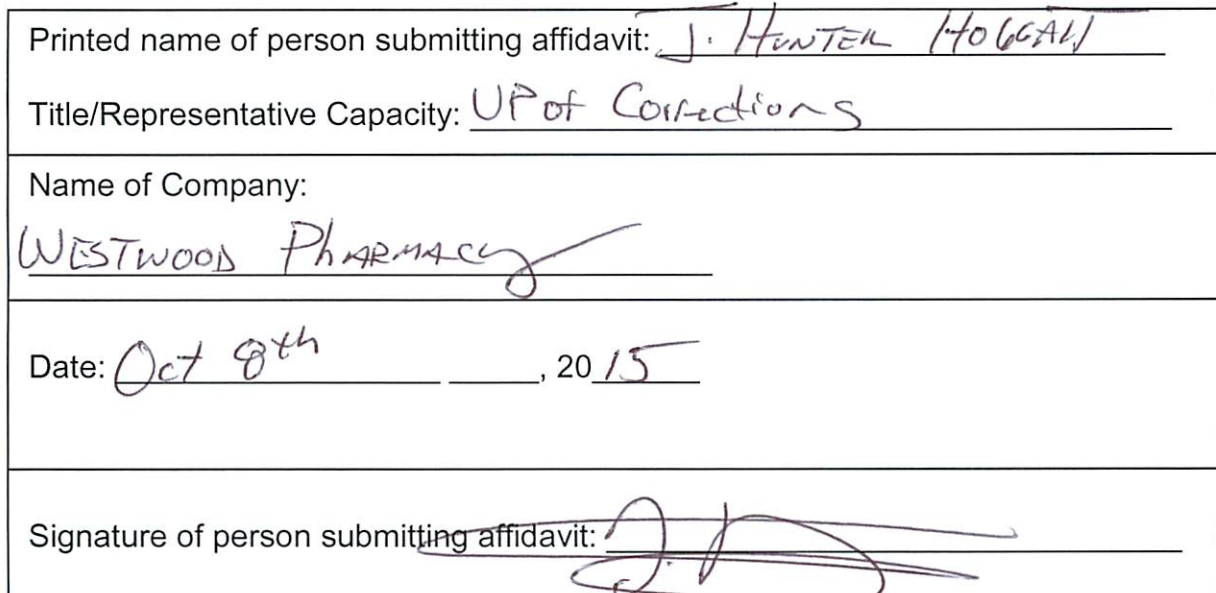 Printed name of person submitting affidavit: J. HUNTER
Title/Representative Capacity: VP of Corrections
Name of Company:
WESTWOOD PHARMACY
Date: Oct 8th , 20 15
Signature of person submitting affidavit: